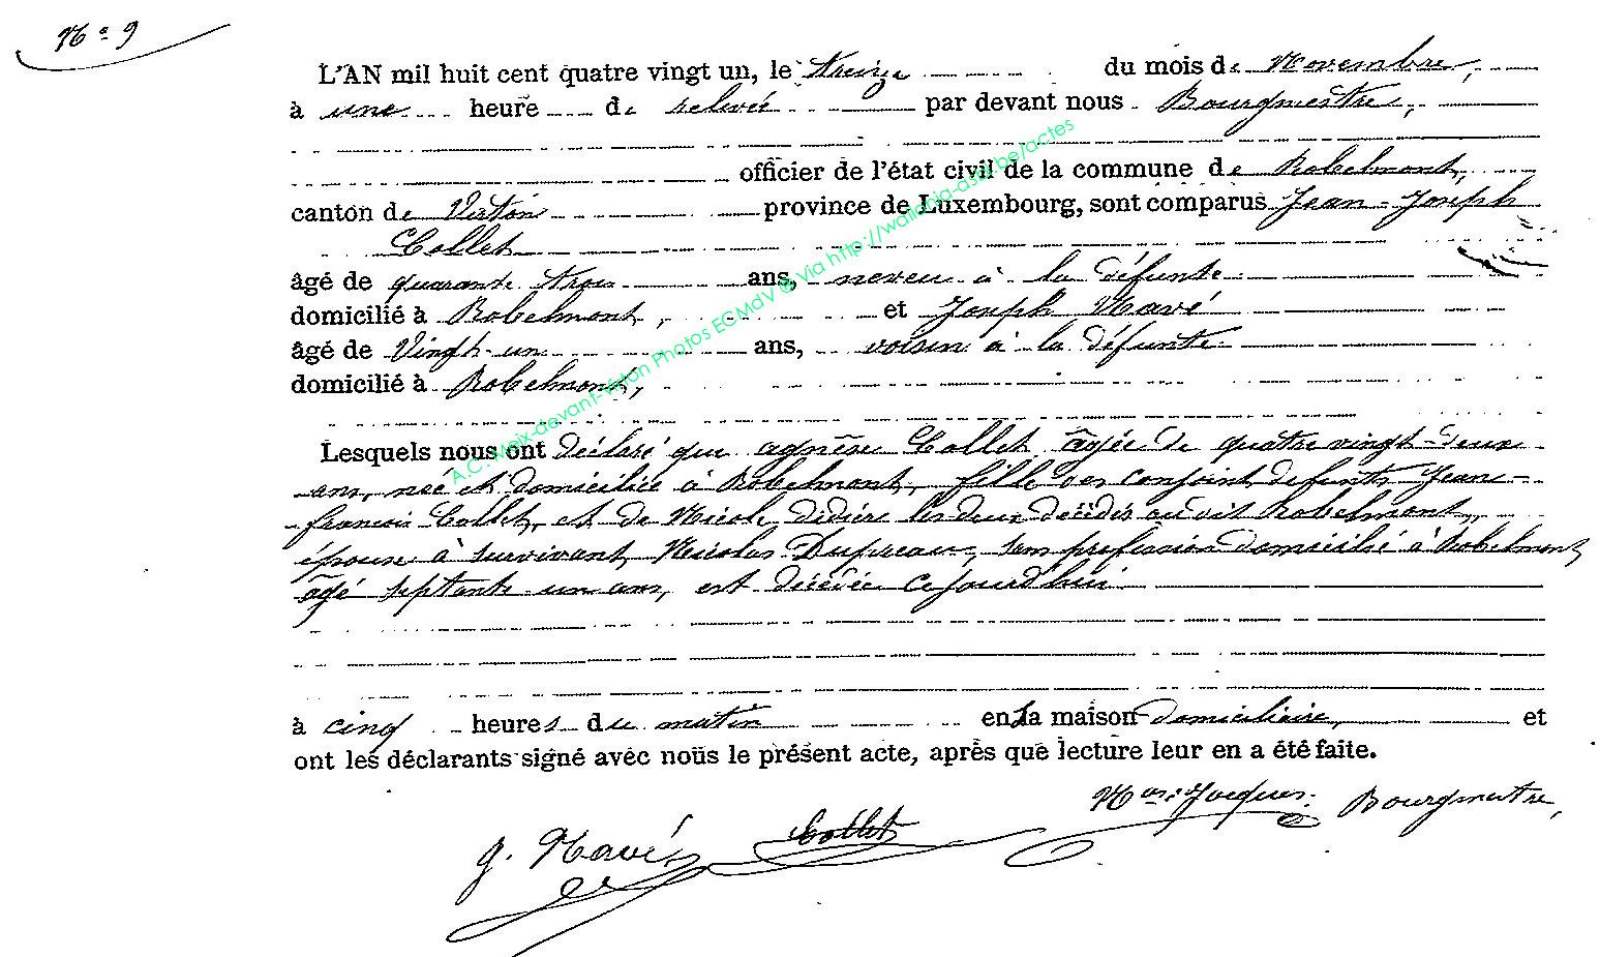 N° 9
L'AN mil huit cent quatre vingt un, le treize du mois de Novembre,
à une heure de relevée par devant nous Bourgmestre,
officier de l'état civil de la commune de Robelmont,
canton de Virton province de Luxembourg, sont comparus Jean-Joseph
Collet
âgé de quarante trois ans, neveu à la défunte
domicilié à Robelmont, et Joseph Navé
âgé de Vingt-un ans, voisin à la défunte
domicilié à Robelmont,
Lesquels nous ont déclaré que agnèse Collet âgée de quatre vingt-deux
ans, née et domiciliée à Robelmont, fille des conjoint defunts Jean-
francois Collet, et de Nicole Didière les deux décédés au dit Robelmont,
épouse à survivant Nicolas Dupreaux, sans profession domicilié à Robelmont
âgé septante un ans, est décédée cejourd'hui
à cinq heures du matin en la maison domiciliaire, et
ont les déclarants signé avec nous le présent acte, après que lecture leur en a été faite.
J. Navé Collet Jacques Bourgmestre,
A.C. Meix-devant-Virton Photos ECMdV © via http://wallonia-asbl.be/actes